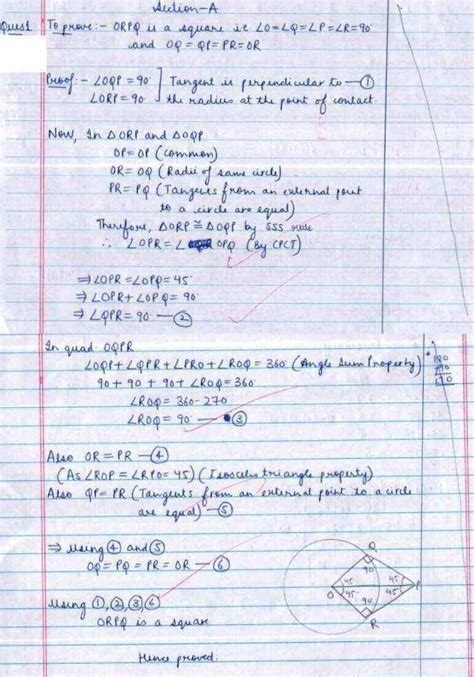 Section-A
Ques1 To prove:- ORPQ is a square i.e ∠O=∠Q=∠P=∠R=90°
and OQ = QP = PR = OR
Proof:- ∠OQP = 90° ] Tangent is perpendicular to — ①
∠ORP = 90° the radius at the point of contact.
Now, In ΔORP and ΔOQP
OP = OP (common)
OR = OQ (Radii of same circle)
PR = PQ (Tangents from an external point
to a circle are equal)
Therefore, ΔORP ≅ ΔOQP by SSS rule
∴ ∠OPR = ∠ OPQ (By CPCT)
⇒ ∠OPR = ∠OPQ = 45°
⇒ ∠OPR + ∠OPQ = 90°
⇒ ∠QPR = 90 — ②
In quad OQPR
∠OQP + ∠QPR + ∠PRO + ∠ROQ = 360° (Angle Sum Property)
90 + 90 + 90 + ∠ROQ = 360°
∠ROQ = 360 - 270
∠ROQ = 90° — ③
Also OR = PR — ④
(As ∠ROP = ∠RPO = 45) (Isosceles triangle property)
Also QP = PR (Tangents from an external point to a circle
are equal) — ⑤
⇒ Using ④ and ⑤
OQ = PQ = PR = OR — ⑥
Using ①,②,③,⑥
ORPQ is a square
Hence proved.
Q
90
45 45
O P
45 45
90
R